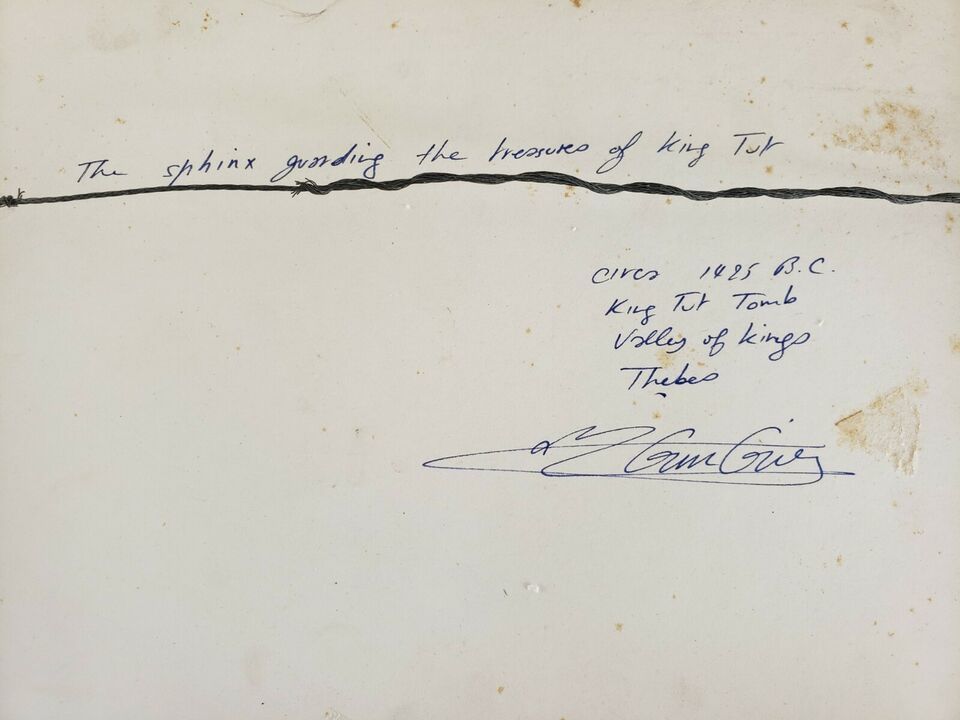 The sphinx guarding the treasures of King Tut
circa 1425 B.C.
King Tut Tomb
Valley of Kings
Thebes